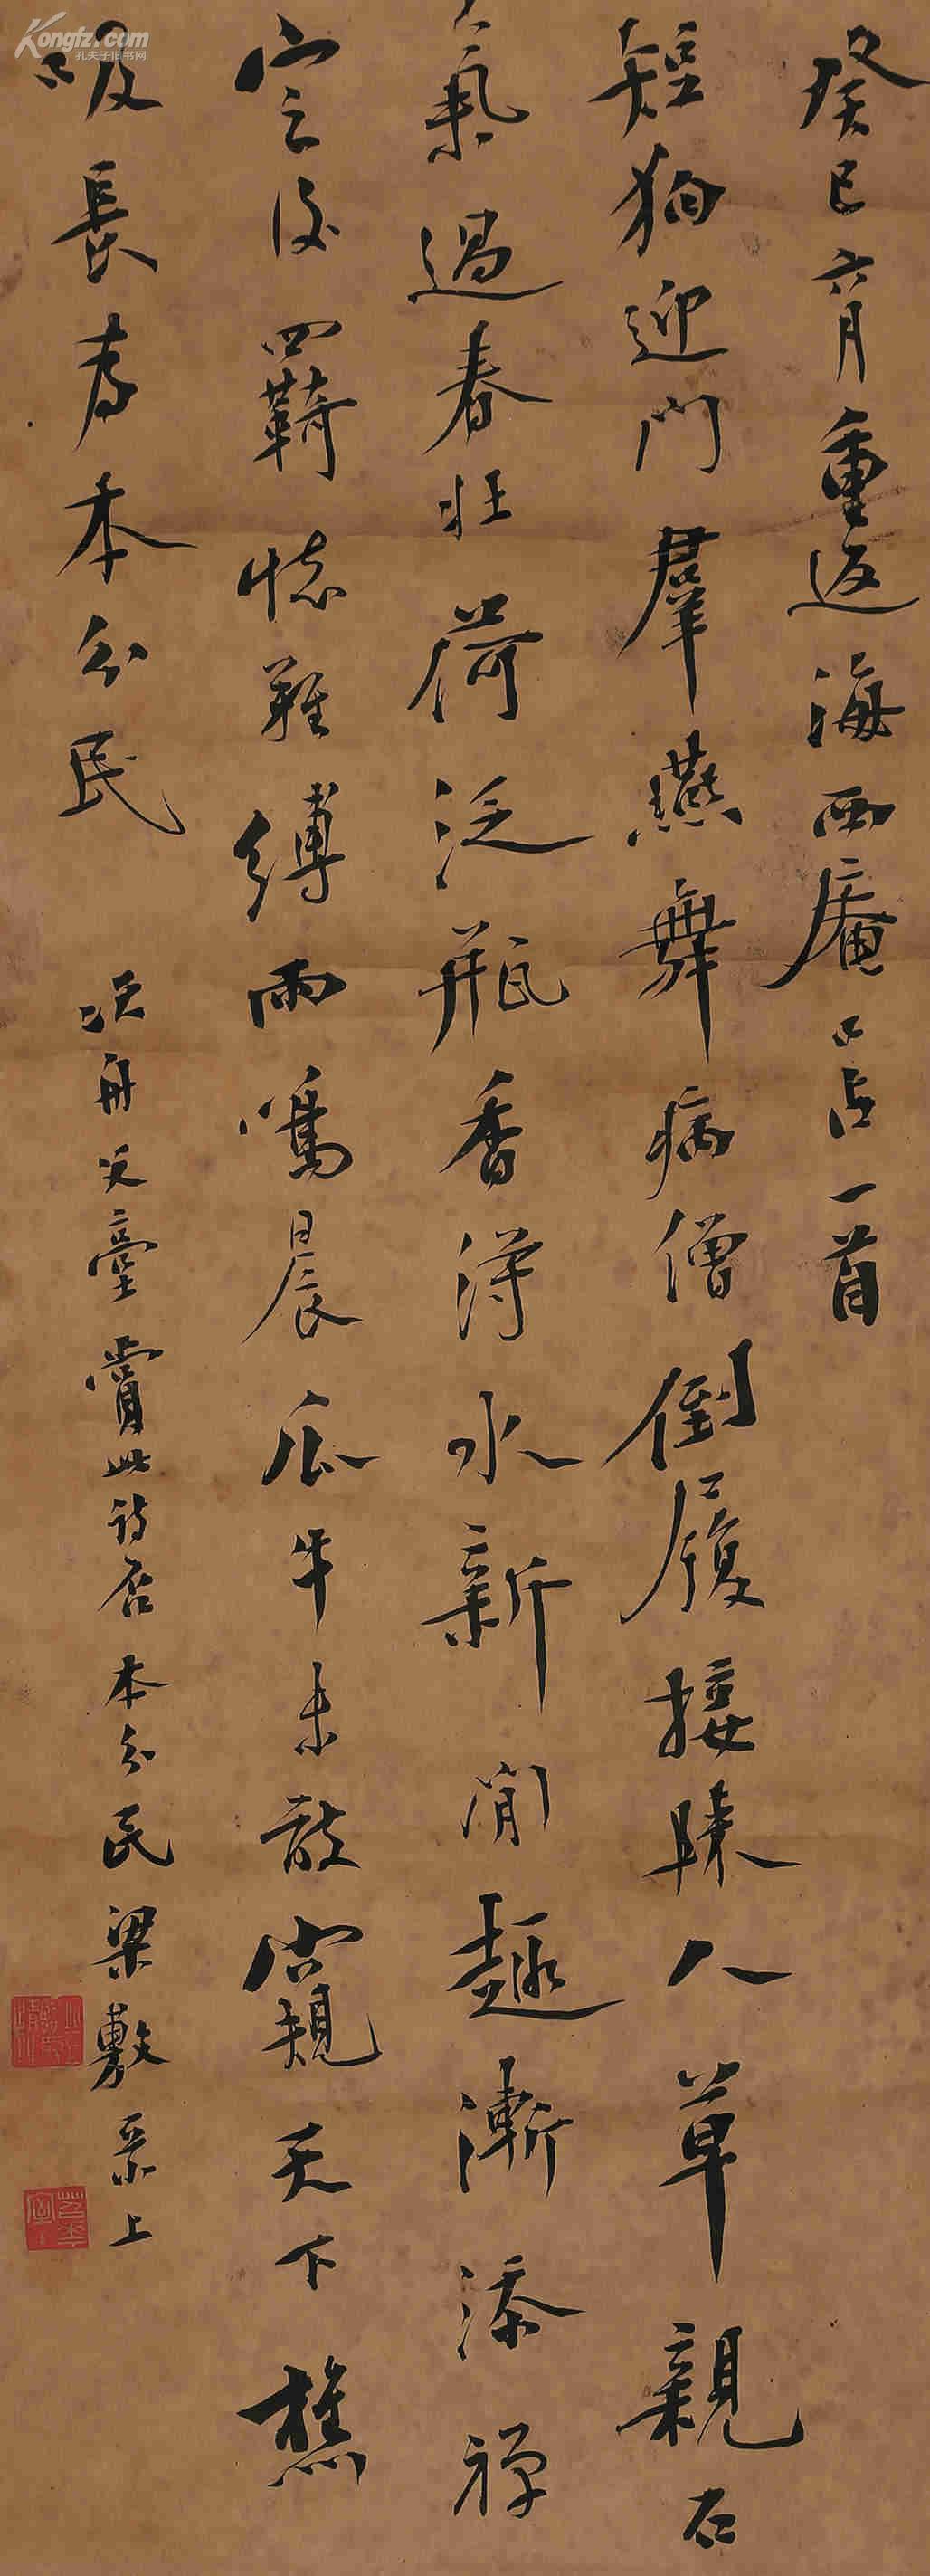 癸巳六月重返海西庵口占一首
短狗迎門羣燕舞病僧倒履接陳人草親石
氣過春壯荷泛瓶香得水新閒趣漸添禪
定後四羇情難縛雨鳴晨瓜牛未敢窺天下樵
吸長為本分民
次舟文臺賞此詩否本分民梁敷呆上
Kongfz.com
孔夫子旧书网